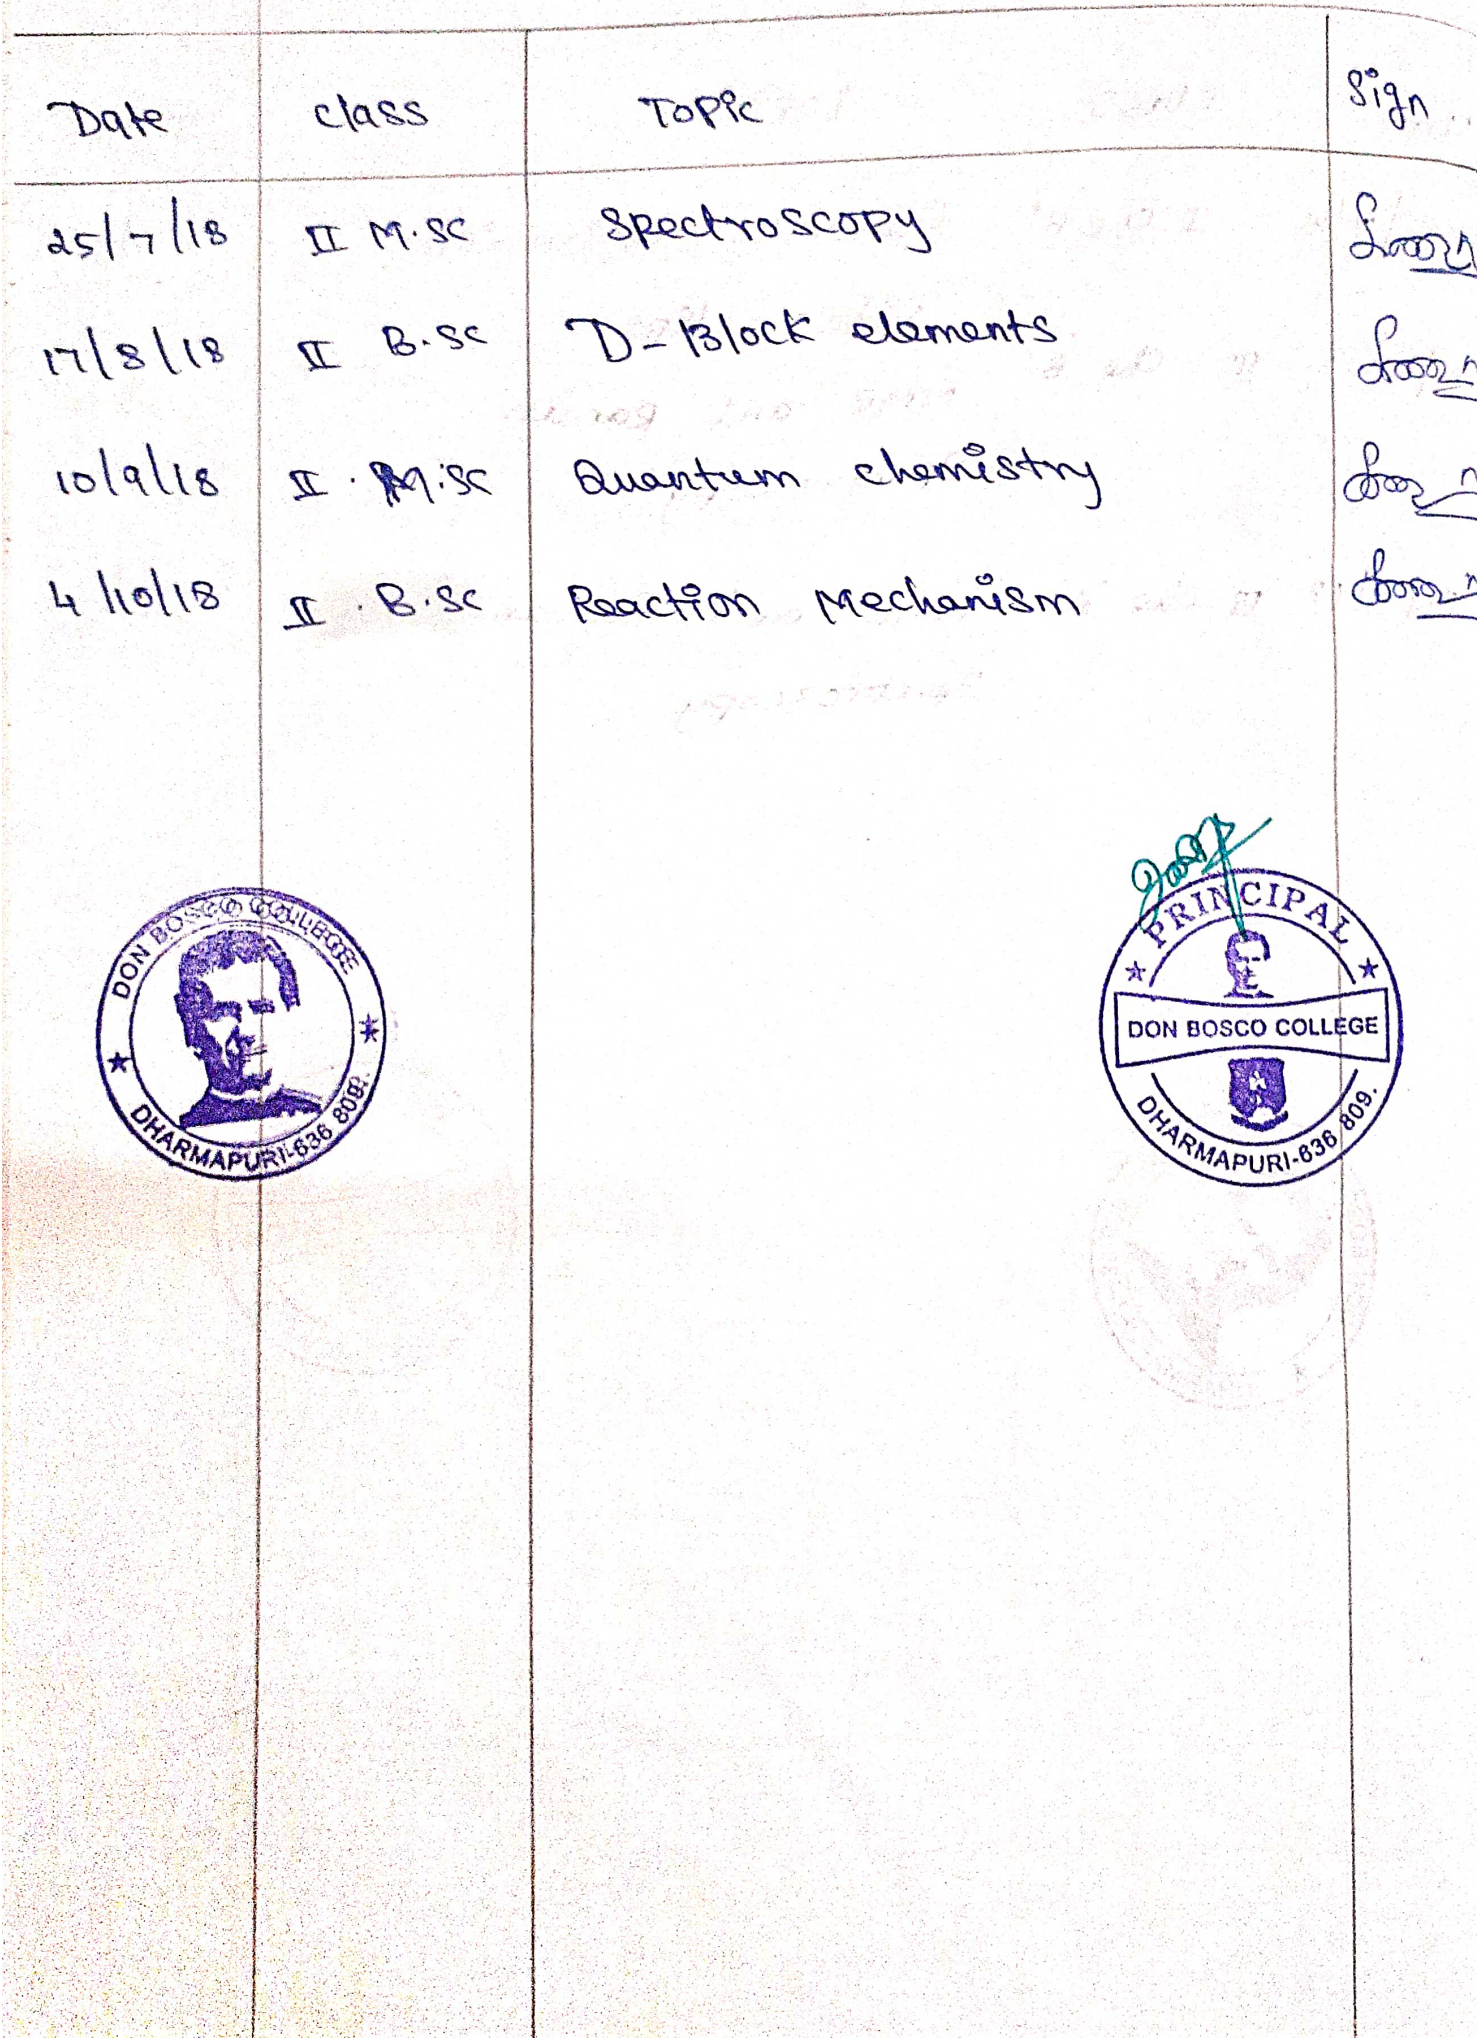 Date class Topic Sign
25/7/18 II M.SC Spectroscopy
17/8/18 II B.SC D-Block elements
10/9/18 II. M.SC Quantum chemistry
4/10/18 II. B.SC Reaction Mechanism
DON BOSCO COLLEGE
DHARMAPURI-636 809.
PRINCIPAL
DON BOSCO COLLEGE
DHARMAPURI-636 809.